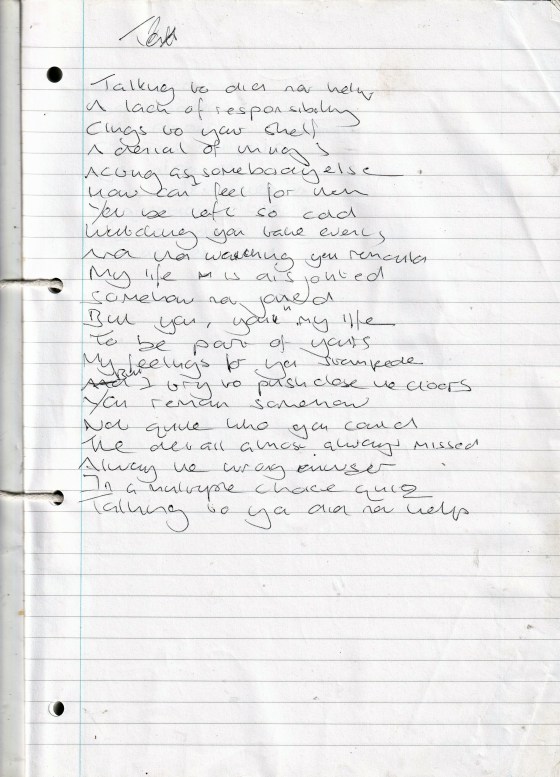 Talking to did not help
A lack of responsibility
Clings to your shelf
A denial of
Acting as somebody else
How can I feel for
Yet be left so cold
Watching you take
watching you
My life is disjointed
Somehow not joined
But you, your my life
To be part of yours
My feelings for you stampede
But I try to push close the doors
You remain somehow
Not quite who you could
The detail almost always missed
Always the wrong answer
In a multiple choice quiz
Talking to ya did not help